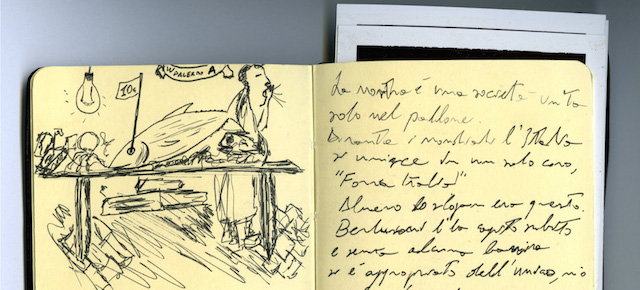 W PALERMO A
10€
La nostra è una società unita
solo nel pallone.
Durante i mondiali l'Italia
si unisce in un solo coro,
"Forza Italia!"
Almeno lo slogan era questo,
Berlusconi l'ha capito subito
e senza alcuna
si è appropriato dell'unico,